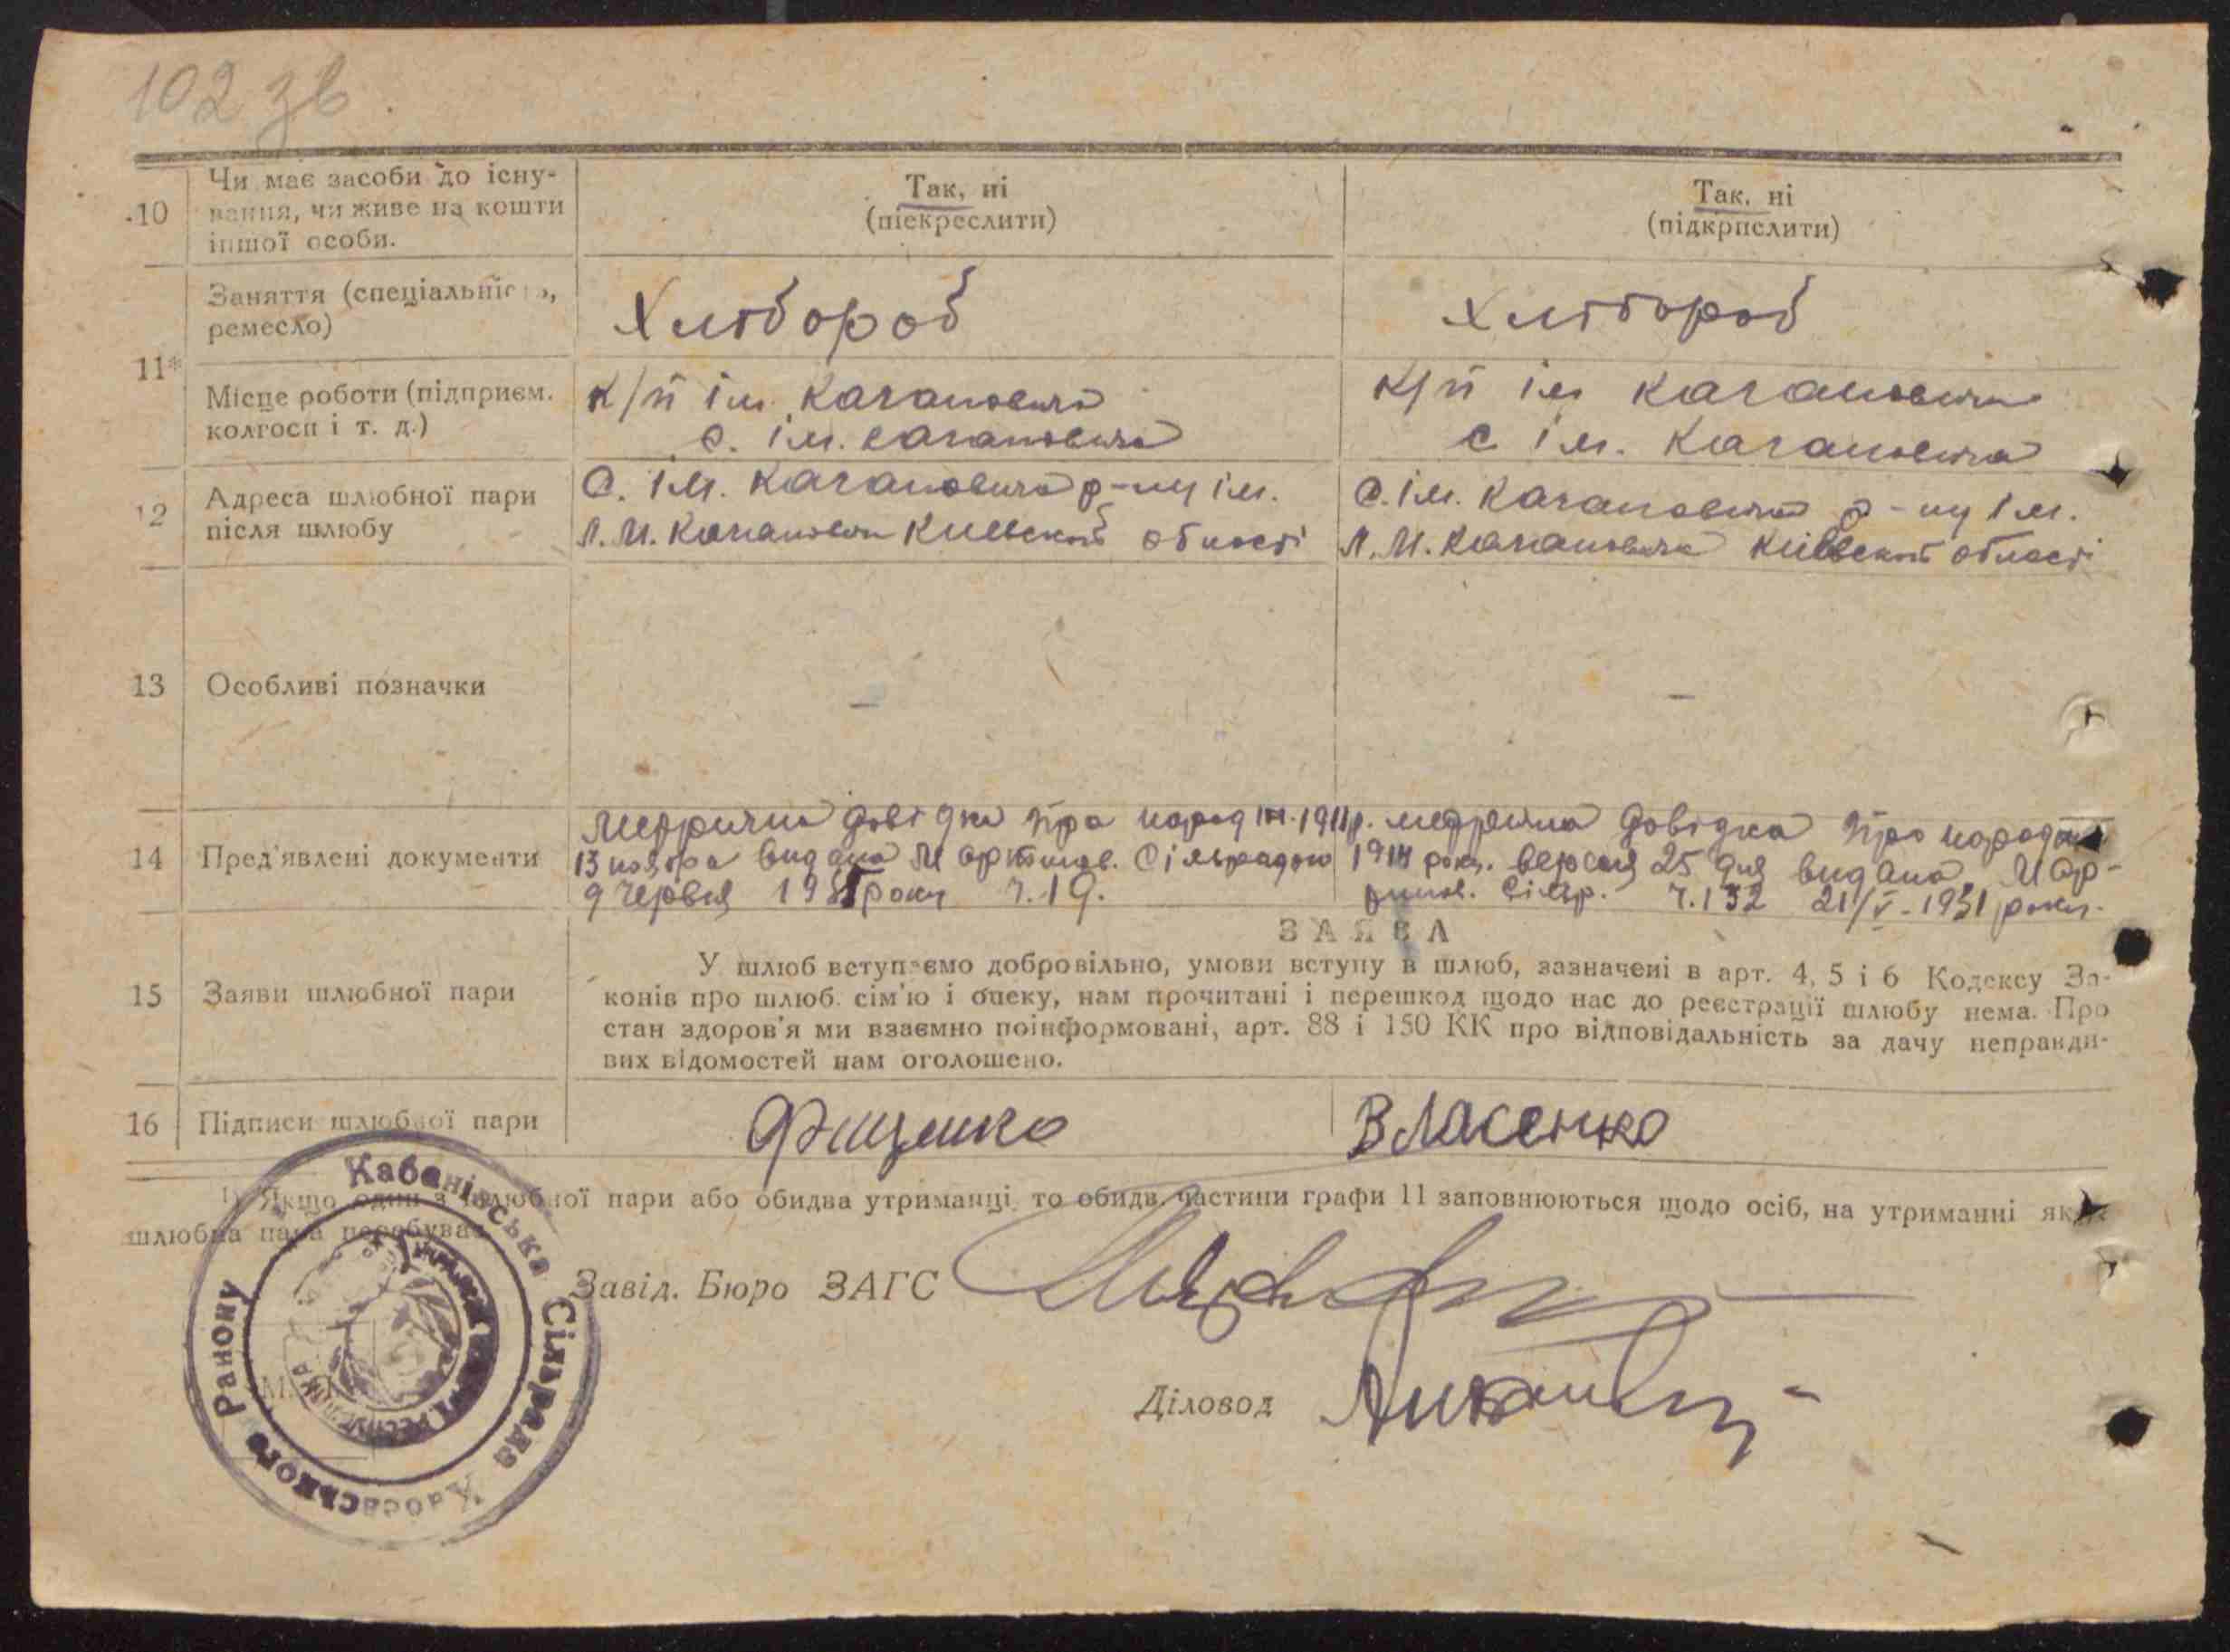 102 зв
10
Чи має засоби до існу-
вання, чи живе на кошти
іншої особи.
Так, ні
(піекреслити)
Так, ні
(підкрпслити)
11*
Заняття (спеціальність,
ремесло)
Хлібороб
Хлібороб
Місце роботи (підприєм.
колгосп і т. д.)
к/п ім. Кагановича
с. ім. Кагановича
к/п ім Кагановича
с ім. Кагановича
12
Адреса шлюбної пари
після шлюбу
С. ім. Кагановича р-ну ім.
Л. М. Каганович Київської області
С. ім. Кагановича р-ну ім.
Л. М. Кагановича Київської області
13
Особливі позначки
–
–
14
Пред'явлені документи
Метрична довідка про народ
13 видана Сільрадою
9 червня року ч. 19.
метрична довідка про
року. версня 25 дня видана Мар-
Сільр. ч. 132 21/V - 1931 року.
15
Заяви шлюбної пари
ЗАЯВА
У шлюб вступаємо добровільно, умови вступу в шлюб, зазначені в арт. 4, 5 і 6 Кодексу За-
конів про шлюб. сім'ю і опеку, нам прочитані і перешкод щодо нас до реєстрації шлюбу нема. Про
стан здоров'я ми взаємно поінформовані, арт. 88 і 150 КК про відповідальність за дачу неправди-
вих відомостей нам оголошено.
16
Підписи шлюбної пари
Фищенко
Власенко
1) Якщо один з шлюбної пари або обидва утриманці, то обидв. частини графи 11 заповнюються щодо осіб, на утриманні яких
шлюбна пара перебуває
Завід. Бюро ЗАГС
Діловод
М. П.
Кабанівська Сільрада Кабанського Району